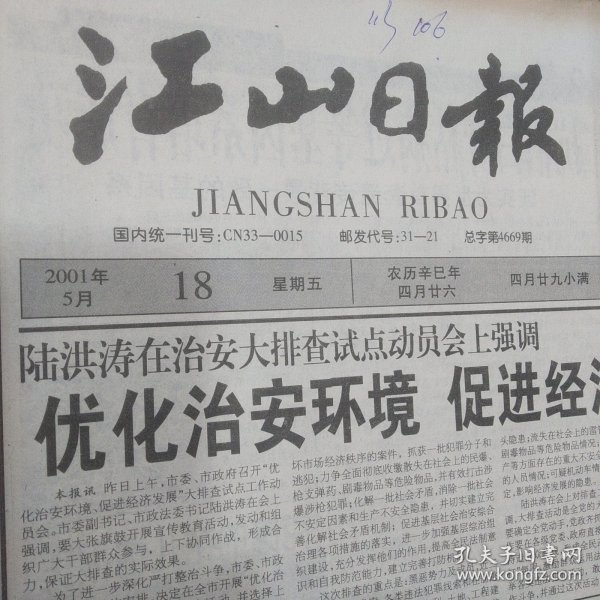 106
江山日報
JIANGSHAN RIBAO
国内统一刊号:CN33—0015 邮发代号:31—21 总字第4669期
2001年
5月
18
星期五
农历辛巳年
四月廿六
四月廿九小满
陆洪涛在治安大排查试点动员会上强调
优化治安环境 促进经济
本报讯 昨日上午,市委、市政府召开“优
化治安环境、促进经济发展”大排查试点工作动
员会。市委副书记、市政法委书记陆洪涛在会上
强调,要大张旗鼓开展宣传教育活动,发动和组
织广大干部群众参与,上下协同作战,形成合
力,保证大排查的实际效果。
为了进一步深化严打整治斗争,市委、市政
决定在全市开展“优化治
坏市场经济秩序的案件,抓获一批犯罪分子和
逃犯;力争全面彻底收缴散失在社会上的民爆、
枪支弹药、剧毒物品等危险物品,并有效打击涉
爆涉枪犯罪;化解一批社会矛盾,消除一批社会
不安定因素和生产不安全隐患,并切实建立完
善化解社会矛盾机制;促进基层社会治安综合
治理各项措施的落实,进一步加强基层综治组
织建设,充分发挥他们的作用,提高全民法制意
识和自我防范能力,建立完善打防
这次排查的重点是:黑恶势力
各类违法犯罪线索
头隐患;流失在社会上的雷管
剧毒物品等危险物品情况;
产等方面存在的重大不安全
的人员情况;可疑机动车情
定,影响经济发展的隐患。
陆洪涛在会上对排查
,大排查活动是全党的大
要确定全党动手,党政齐抓
孔夫子旧书网
www.kongfz.com